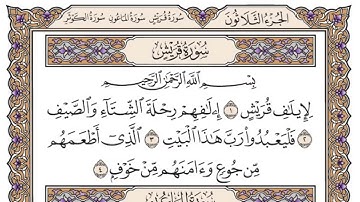 الجزء الثلاثون سورة قريش سورة الماعون سورة الكوثر
سُورَةُ قُرَيْشٍ
بِسْمِ ٱللَّهِ ٱلرَّحْمَٰنِ ٱلرَّحِيمِ
لِإِيلَٰفِ قُرَيْشٍ ١ إِۦلَٰفِهِمْ رِحْلَةَ ٱلشِّتَآءِ وَٱلصَّيْفِ
٢ فَلْيَعْبُدُوا۟ رَبَّ هَٰذَا ٱلْبَيْتِ ٣ ٱلَّذِىٓ أَطْعَمَهُم
مِّن جُوعٍ وَءَامَنَهُم مِّنْ خَوْفٍۭ ٤
سُورَةُ المَاعُونِ